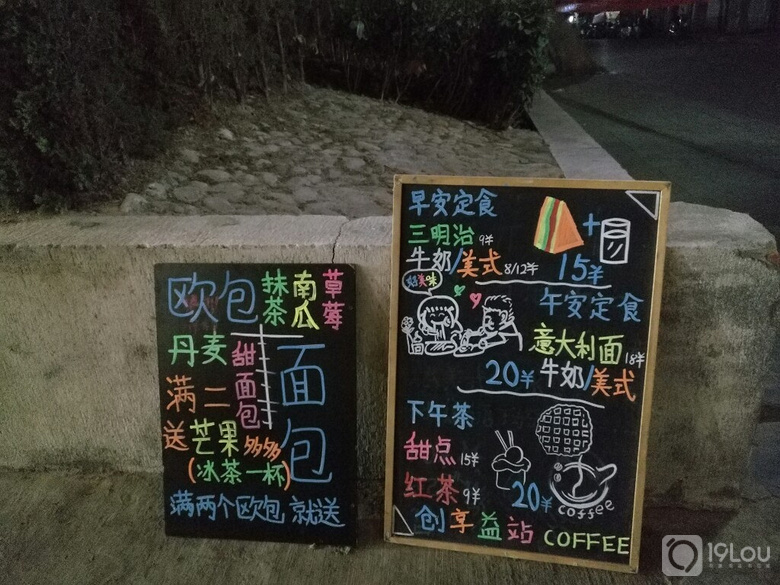 欧包 抹茶 南瓜 草莓
丹麦 甜面包 面包
满二
送芒果多多
(冰茶一杯)
满两个欧包 就送
早安定食
三明治 9羊
牛奶/美式 8/12羊
+ 15羊
好美味
午安定食
意大利面 18羊
20羊 牛奶/美式
下午茶
甜点 15羊
红茶 9羊
20羊
coffee
创享益站 COFFEE
19Lou